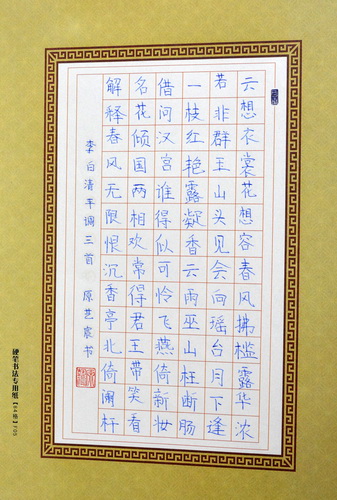 云想衣裳花想容春风拂槛露华浓
若非群玉山头见会向瑶台月下逢
一枝红艳露凝香云雨巫山枉断肠
借问汉宫谁得似可怜飞燕倚新妆
名花倾国两相欢常得君王带笑看
解释春风无限恨沉香亭北倚阑杆
李白清平调三首 原艺宸书
硬笔书法专用纸【84格】